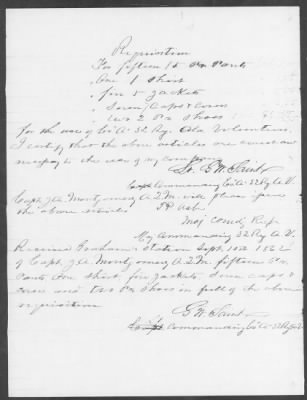 Requisition
For fifteen 15 Prs Pants
One 1 Shirt
five 5 Jackets
Seven 7 Caps & Covers
two 2 Prs Shoes
for the use of Co A. 32 Reg. Ala Volunteers.
I certify that the above articles are
necessary to the use of my company
Lt. G. W.
Commanding Co A 32 Reg A. V.
Capt. J. A. Montgomery A. Q. M. will please issue
the above articles
Maj
Commanding 32 Reg A. V.
Received Station Sept. 1862
of Capt. J. A. Montgomery A. Q. M. fifteen Prs
Pants One Shirt five Jackets, Seven caps &
covers and two Prs Shoes in full of the above
requisition
G. W.
Commanding Co A 32 Reg